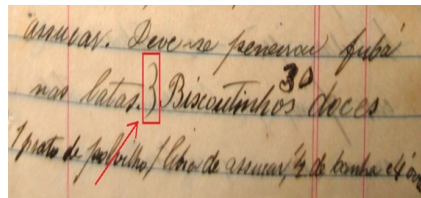 assucar. Deve-se peneirar fubá
nas latas.} Biscoutinhos doces 30
1 prato de polvilho 1 libra de assucar ½ de banha e 4 óvos